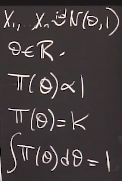 X₁, .. Xₙ iid~ N(θ, 1)
θ ∈ ℝ.
π(θ) ∝ 1
π(θ) = K
∫π(θ)dθ = 1